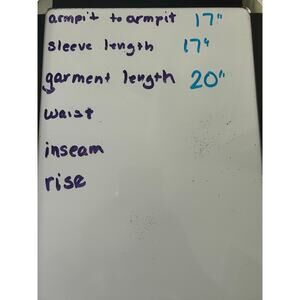 armpit to armpit 17"
sleeve length 17"
garment length 20"
waist
inseam
rise